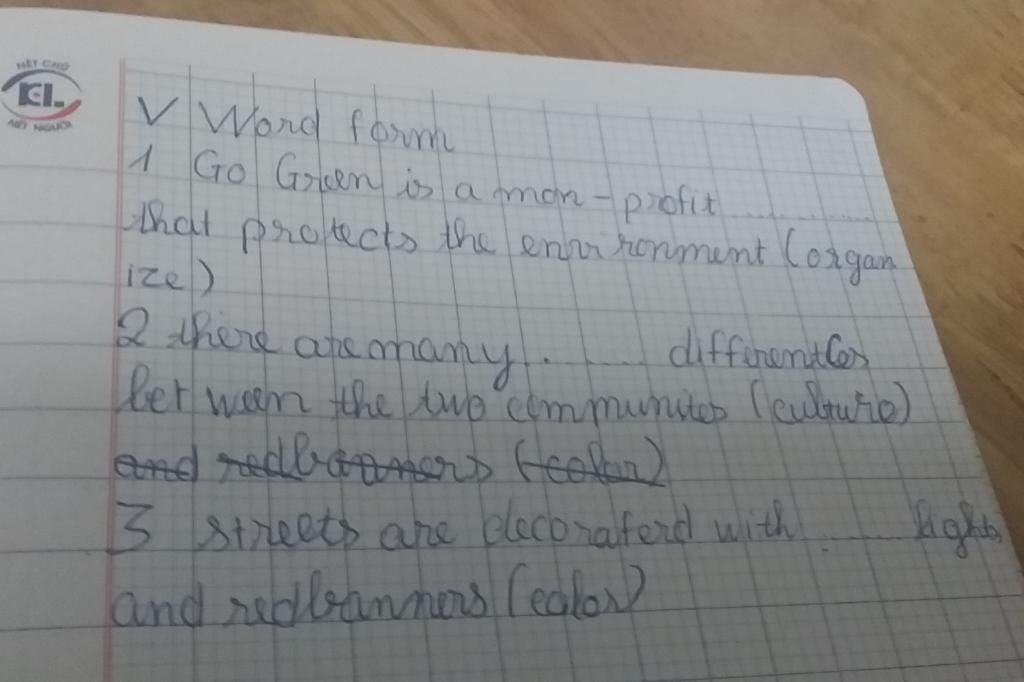 NÉT CHỮ
KL
NẾT NGƯỜI
V Word form
1 Go Green is a mon-profit ............
that protects the environment (organ
ize)
2 there are many ........... differentces
between the two communites (culture)
and red banners (color)
3 streets are decoraterd with ........... lights
and red banners (color)